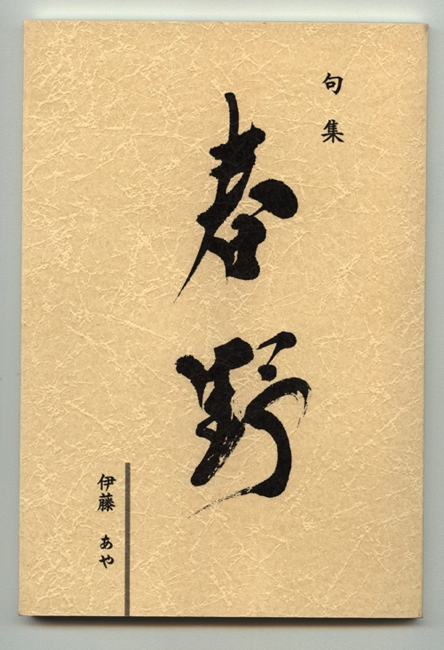 句集
春野
伊藤 あや